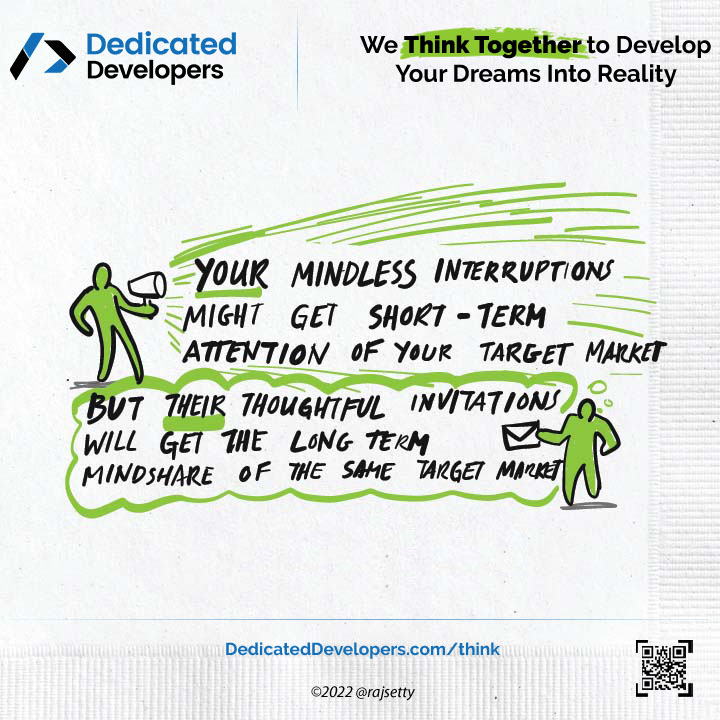 Dedicated
Developers
We Think Together to Develop
Your Dreams Into Reality
YOUR MINDLESS INTERRUPTIONS
MIGHT GET SHORT-TERM
ATTENTION OF YOUR TARGET MARKET
BUT THEIR THOUGHTFUL INVITATIONS
WILL GET THE LONG TERM
MINDSHARE OF THE SAME TARGET MARKET
DedicatedDevelopers.com/think
©2022 @rajsetty